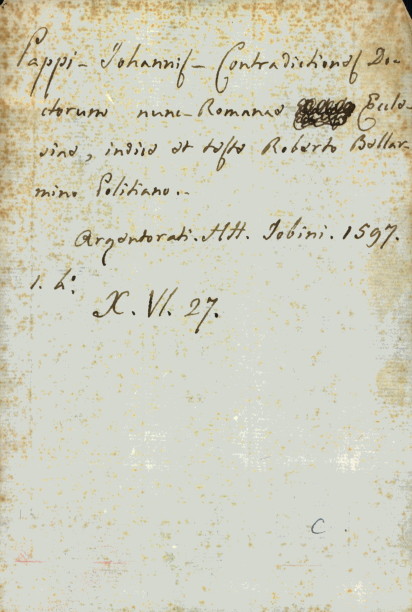 Pappi - Johannis - Contradictiones Do-
ctorum nunc Romanae Eccle-
siae, indice et teste Roberto Bellar-
mino Politiano.-
Argentorati. HH. Jobini. 1597.
1. L:
X. VI. 27.
C.